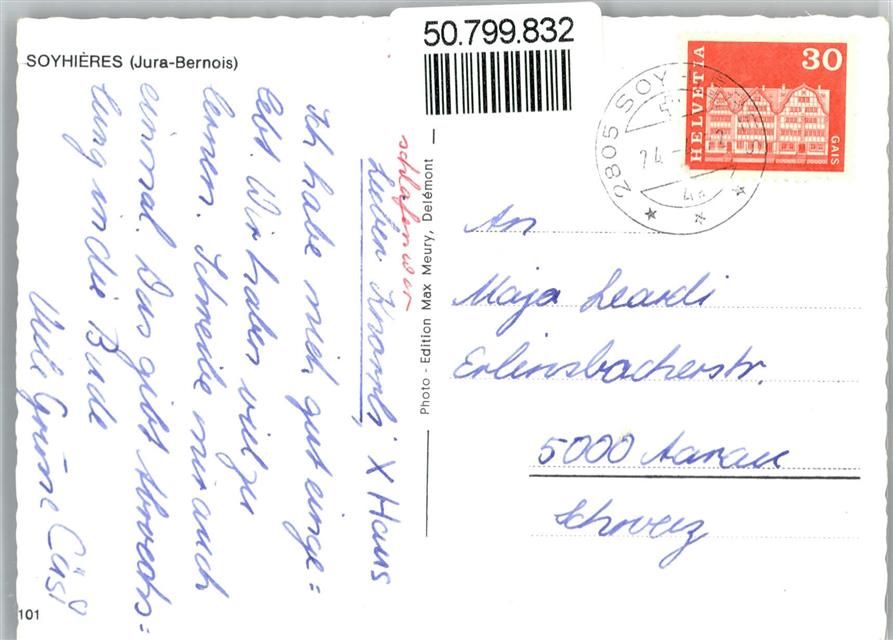 SOYHIÈRES (Jura-Bernois)
50.799.832
HELVETIA
30
GAIS
2805 SOY
Ich habe mich gut einge=
lebt. Wir haben viel zu
lernen. Schreibe mir auch
einmal. Das gibt Abwechs=
lung in die Bude
Viele Grüsse Cüsi
X Haus
Photo - Edition Max Meury, Delémont
An
Maja Leardi
Erlinsbacherstr.
5000 Aarau
Schweiz
101